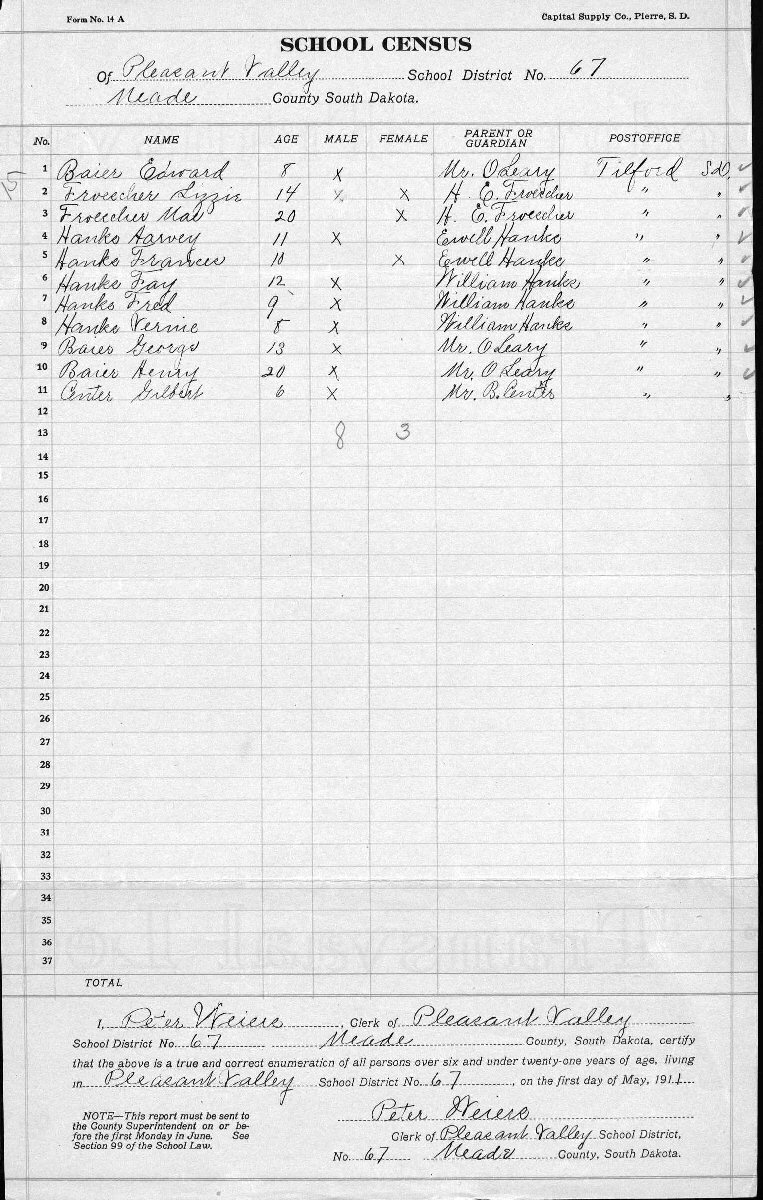 Form No. 14 A
Capital Supply Co., Pierre, S. D.
SCHOOL CENSUS
Of Pleasant Valley School District No. 67
Meade County South Dakota.
No. NAME AGE MALE FEMALE PARENT OR GUARDIAN POSTOFFICE
1 Baier Edward 8 X Mr. O Leary Tilford S.D. ✓
2 Froescher Lizzie 14 X H. E. Froescher " " ✓
3 Froescher Mae 20 X H. E. Froescher " " ✓
4 Hanks Harvey 11 X Ewell Hanks " " ✓
5 Hanks Frances 10 X Ewell Hanks " " ✓
6 Hanks Fay 12 X William Hanks " " ✓
7 Hanks Fred 9 X William Hanks " " ✓
8 Hanks Vernie 8 X William Hanks " " ✓
9 Baier George 13 X Mr. O Leary " " ✓
10 Baier Henry 20 X Mr. O Leary " " ✓
11 Center Gilbert 6 X Mr. B. Center " "
12
13 8 3
14
15
16
17
18
19
20
21
22
23
24
25
26
27
28
29
30
31
32
33
34
35
36
37
TOTAL
I, Peter Weiers, Clerk of Pleasant Valley
School District No. 67 Meade County, South Dakota, certify
that the above is a true and correct enumeration of all persons over six and under twenty-one years of age, living
in Pleasant Valley School District No. 67, on the first day of May, 1911
NOTE—This report must be sent to
the County Superintendent on or be-
fore the first Monday in June. See
Section 99 of the School Law.
Peter Weiers
Clerk of Pleasant Valley School District,
No. 67 Meade County, South Dakota.